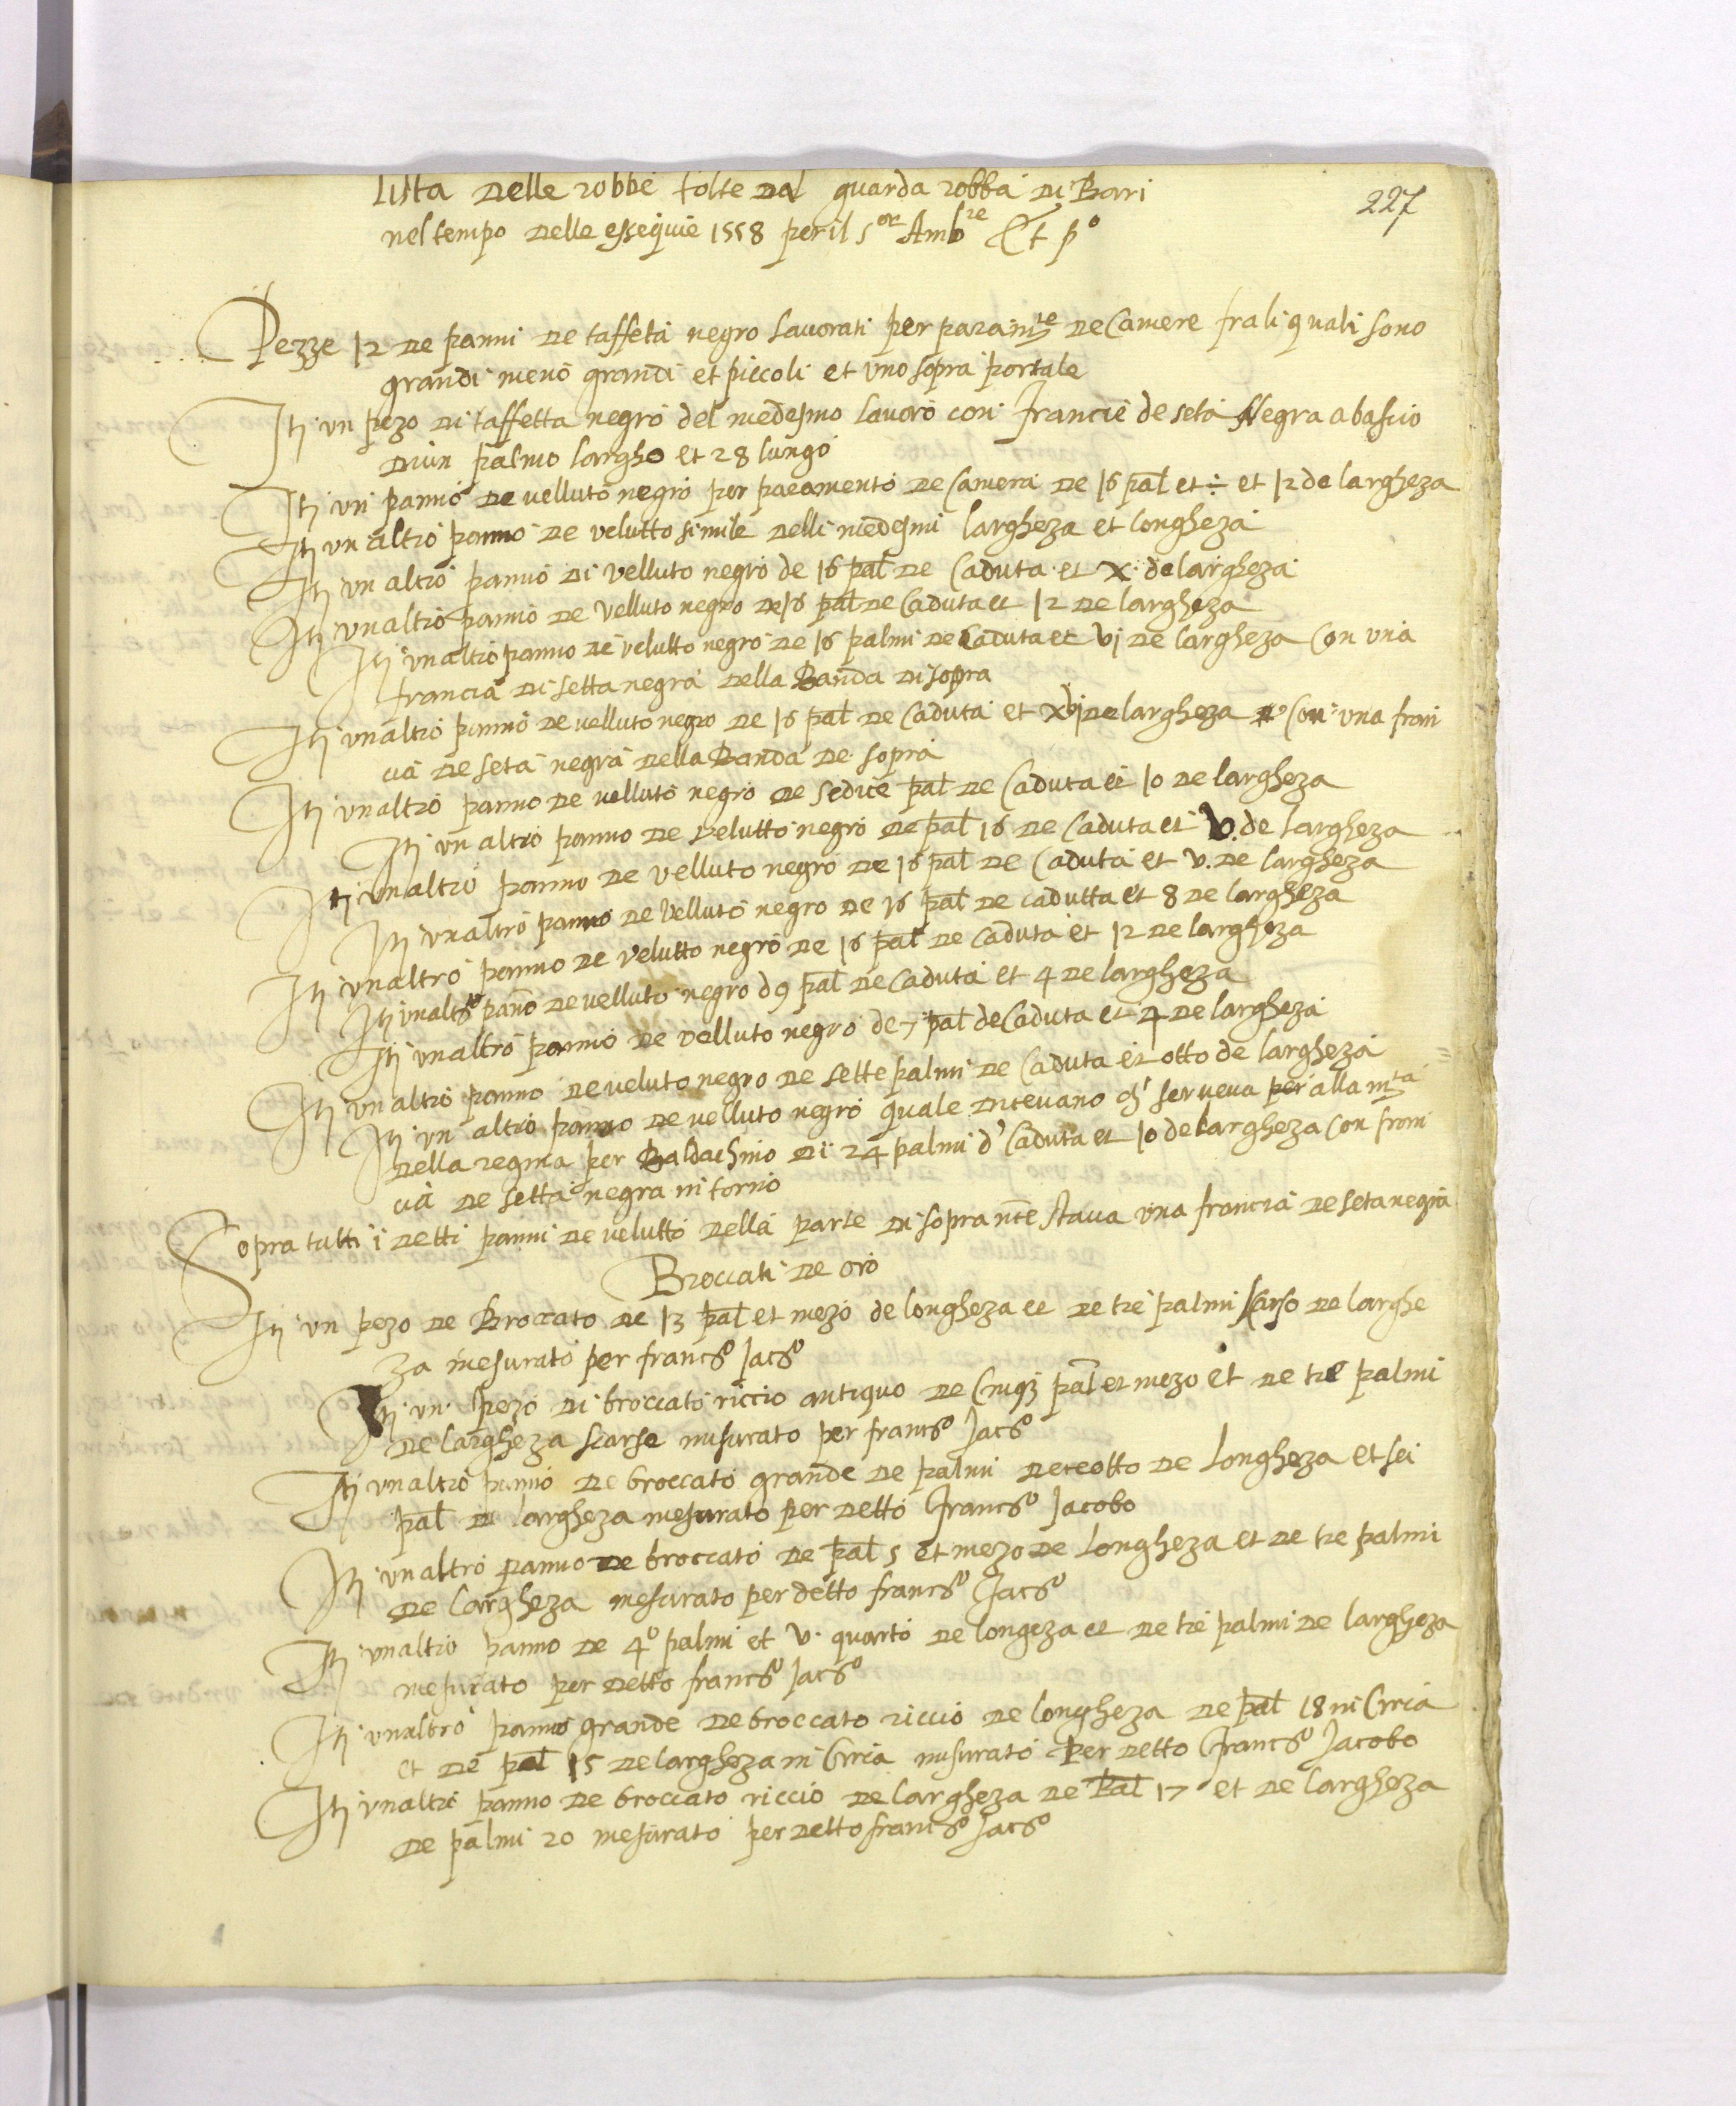 227
lista delle robbe tolte dal guarda robba di Bari
nel tempo delle essequie 1558 per il s.or Amb.re Et p.o
Pezze 12 de panni de taffeta negro lavorati per param.te de Camere fra li quali sono
grandi meno grandi et piccoli et uno sopra portale
Itj un pezo di taffetta negro del medesmo lavoro con francie de seta Negra abascio
di un palmo largho et 28 lungo
Itj un panno de velluto negro per paramento de Camera de 16 pal et ÷ et 12 de largheza
Itj un altro panno de velutto simile delli medesmi largheza et longheza
Itj un altro panno di velluto negro de 16 pal de Caduta et x. de largheza
Itj un altro panno de velluto negro de 16 pal de Caduta et 12 de largheza
Itj un altro panno de velutto negro de 16 palmi de Caduta et vj de largheza Con una
francia di setta negra della Banda di sopra
Itj un altro panno de velluto negro de 16 pal de Caduta et xvj de largheza Con una fran
cia de seta negra della Banda de sopra
Itj un altro panno de velluto negro de sedice pal de Caduta et 10 de largheza
Itj un altro panno de velutto negro de pal 16 de Caduta et v. de largheza
Itj un altro panno de velluto negro de 16 pal de Caduta et v. de largheza
Itj un altro panno de velluto negro de 16 pal de cadutta et 8 de largheza
Itj un altro panno de velutto negro de 16 pal de caduta et 12 de largheza
Itj un altro panno de velluto negro d 9 pal de Caduta et 4 de largheza
Itj un altro panno de velluto negro de 7 pal de Caduta et 4 de largheza
Itj un altro panno de veluto negro de sette palmi de Caduta et otto de largheza
Itj un altro panno de velluto negro quale dicevano ch' serveva per alla m.ta
della regina per Baldachino di 24 palmi d' Caduta et 10 de largheza con fran
cia de setta negra in torno
Sopra tutti i detti panni de velutto della parte di sopra nce stava una francia de seta negra
Broccati de oro
Itj un pezo de Broccato de 13 pal et mezo de longheza et de tre palmi scarso de larghe
za mesurato per franc.o Jac.o
Itj un pezo di broccato riccio antiquo de Cinq3 pal et mezo et de tre palmi
de largheza scarse misurato per franc.o Jac.o
Itj un altro panno de broccato grande de palmi deceotto de Longheza et sei
pal di largheza mesurato per detto franc.o Jacobo
Itj un altro panno de broccato de pal 5 et mezo de Longheza et de tre palmi
de largheza mesurato per detto franc.o Jac.o
Itj un altro panno de 4.o palmi et v. quarto de longeza et de tre palmi de largheza
mesurato per detto franc.o Jac.o
Itj un altro panno grande de broccato riccio de longheza de pal 18 in Circa
et de pal 15 de largheza in Circa misurato per detto franc.o Jacobo
Itj un altro panno de broccato riccio de largheza de pal 17 et de largheza
de palmi 20 mesurato per detto franc.o Jac.o